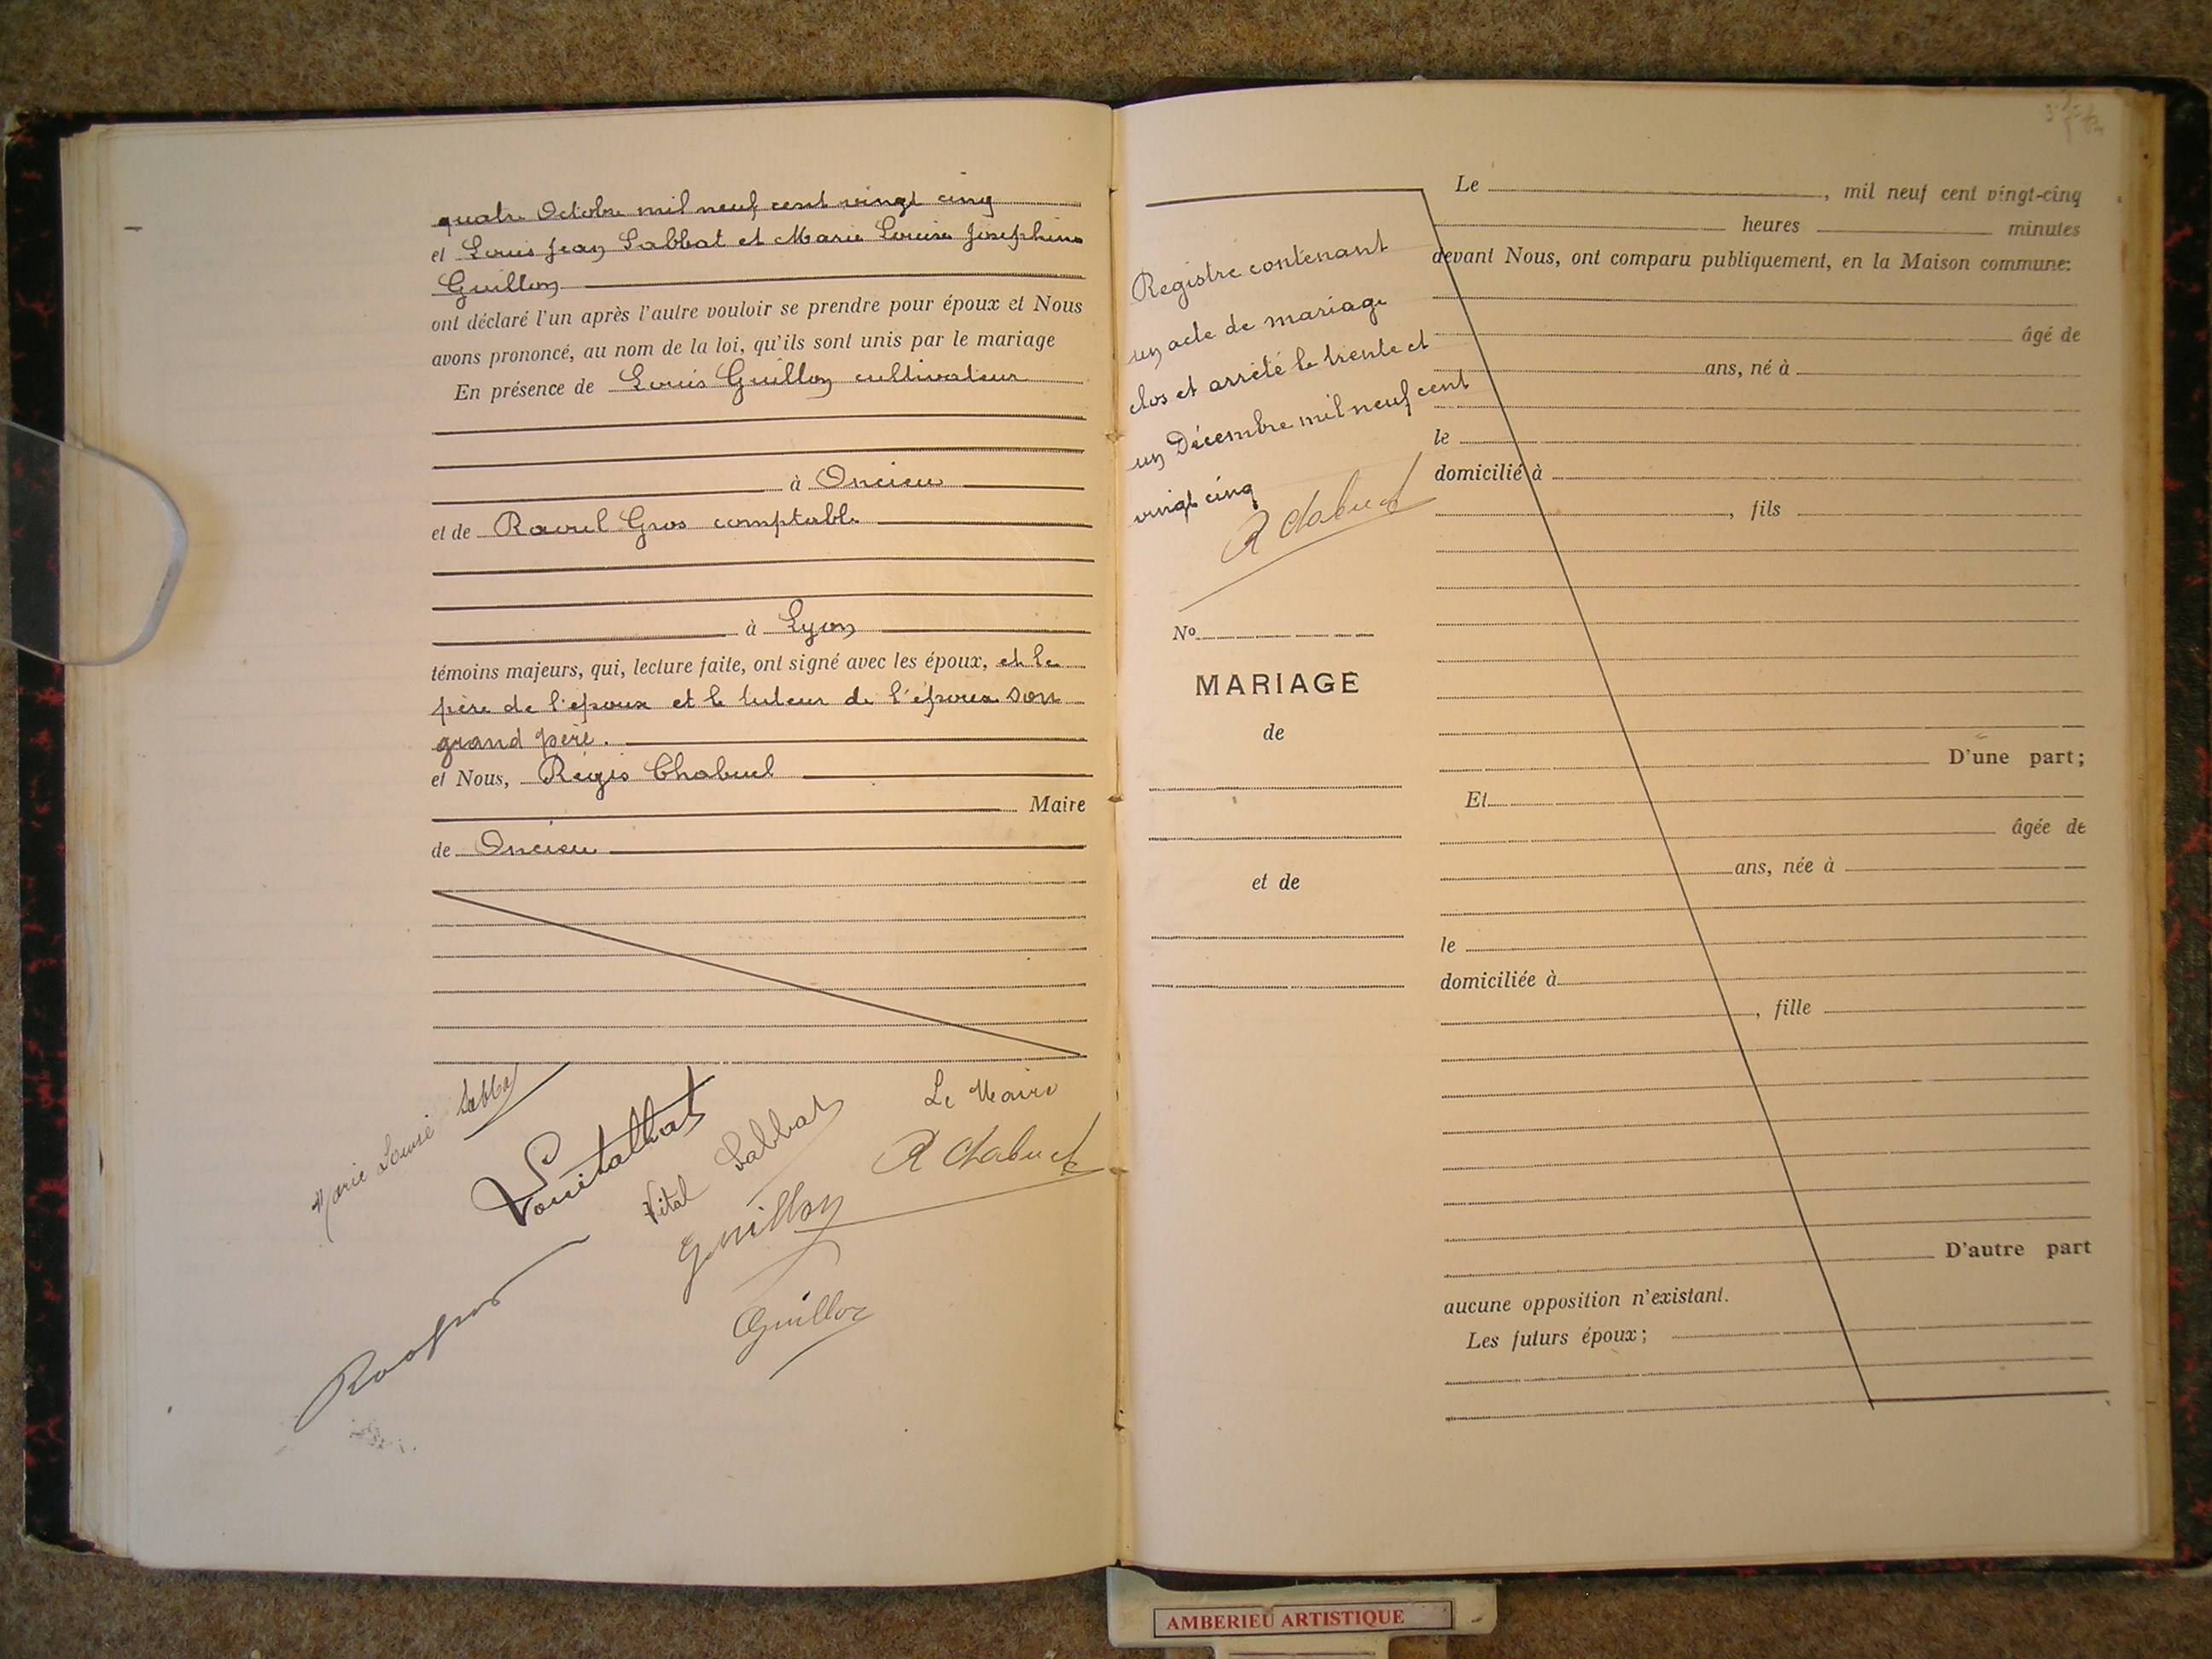 quatre Octobre mil neuf cent vingt cinq
et Louis Jean Labbat et Marie Louise Joséphine
Guillon
ont déclaré l'un après l'autre vouloir se prendre pour époux et Nous
avons prononcé, au nom de la loi, qu'ils sont unis par le mariage
En présence de Louis Guillon cultivateur
à Oncieu
et de Raoul Gros comptable
à Lyon
témoins majeurs, qui, lecture faite, ont signé avec les époux, et le
père de l'époux et le tuteur de l'épouse son
grand père.
et Nous, Régis Chabuel
Maire
de Oncieu
Marie Louise Labbat
Vital Labbat
Le Maire
R Chabuel
Guillon
Guillon
Registre contenant
un acte de mariage
clos et arrêté le trente et
un Décembre mil neuf cent
vingt cinq
R Chabuel
No
MARIAGE
de
et de
Le , mil neuf cent vingt-cinq
heures minutes
devant Nous, ont comparu publiquement, en la Maison commune:
âgé de
ans, né à
le
domicilié à
, fils
D'une part;
Et
âgée de
ans, née à
le
domiciliée à
, fille
D'autre part
aucune opposition n'existant.
Les futurs époux;
AMBERIEU ARTISTIQUE